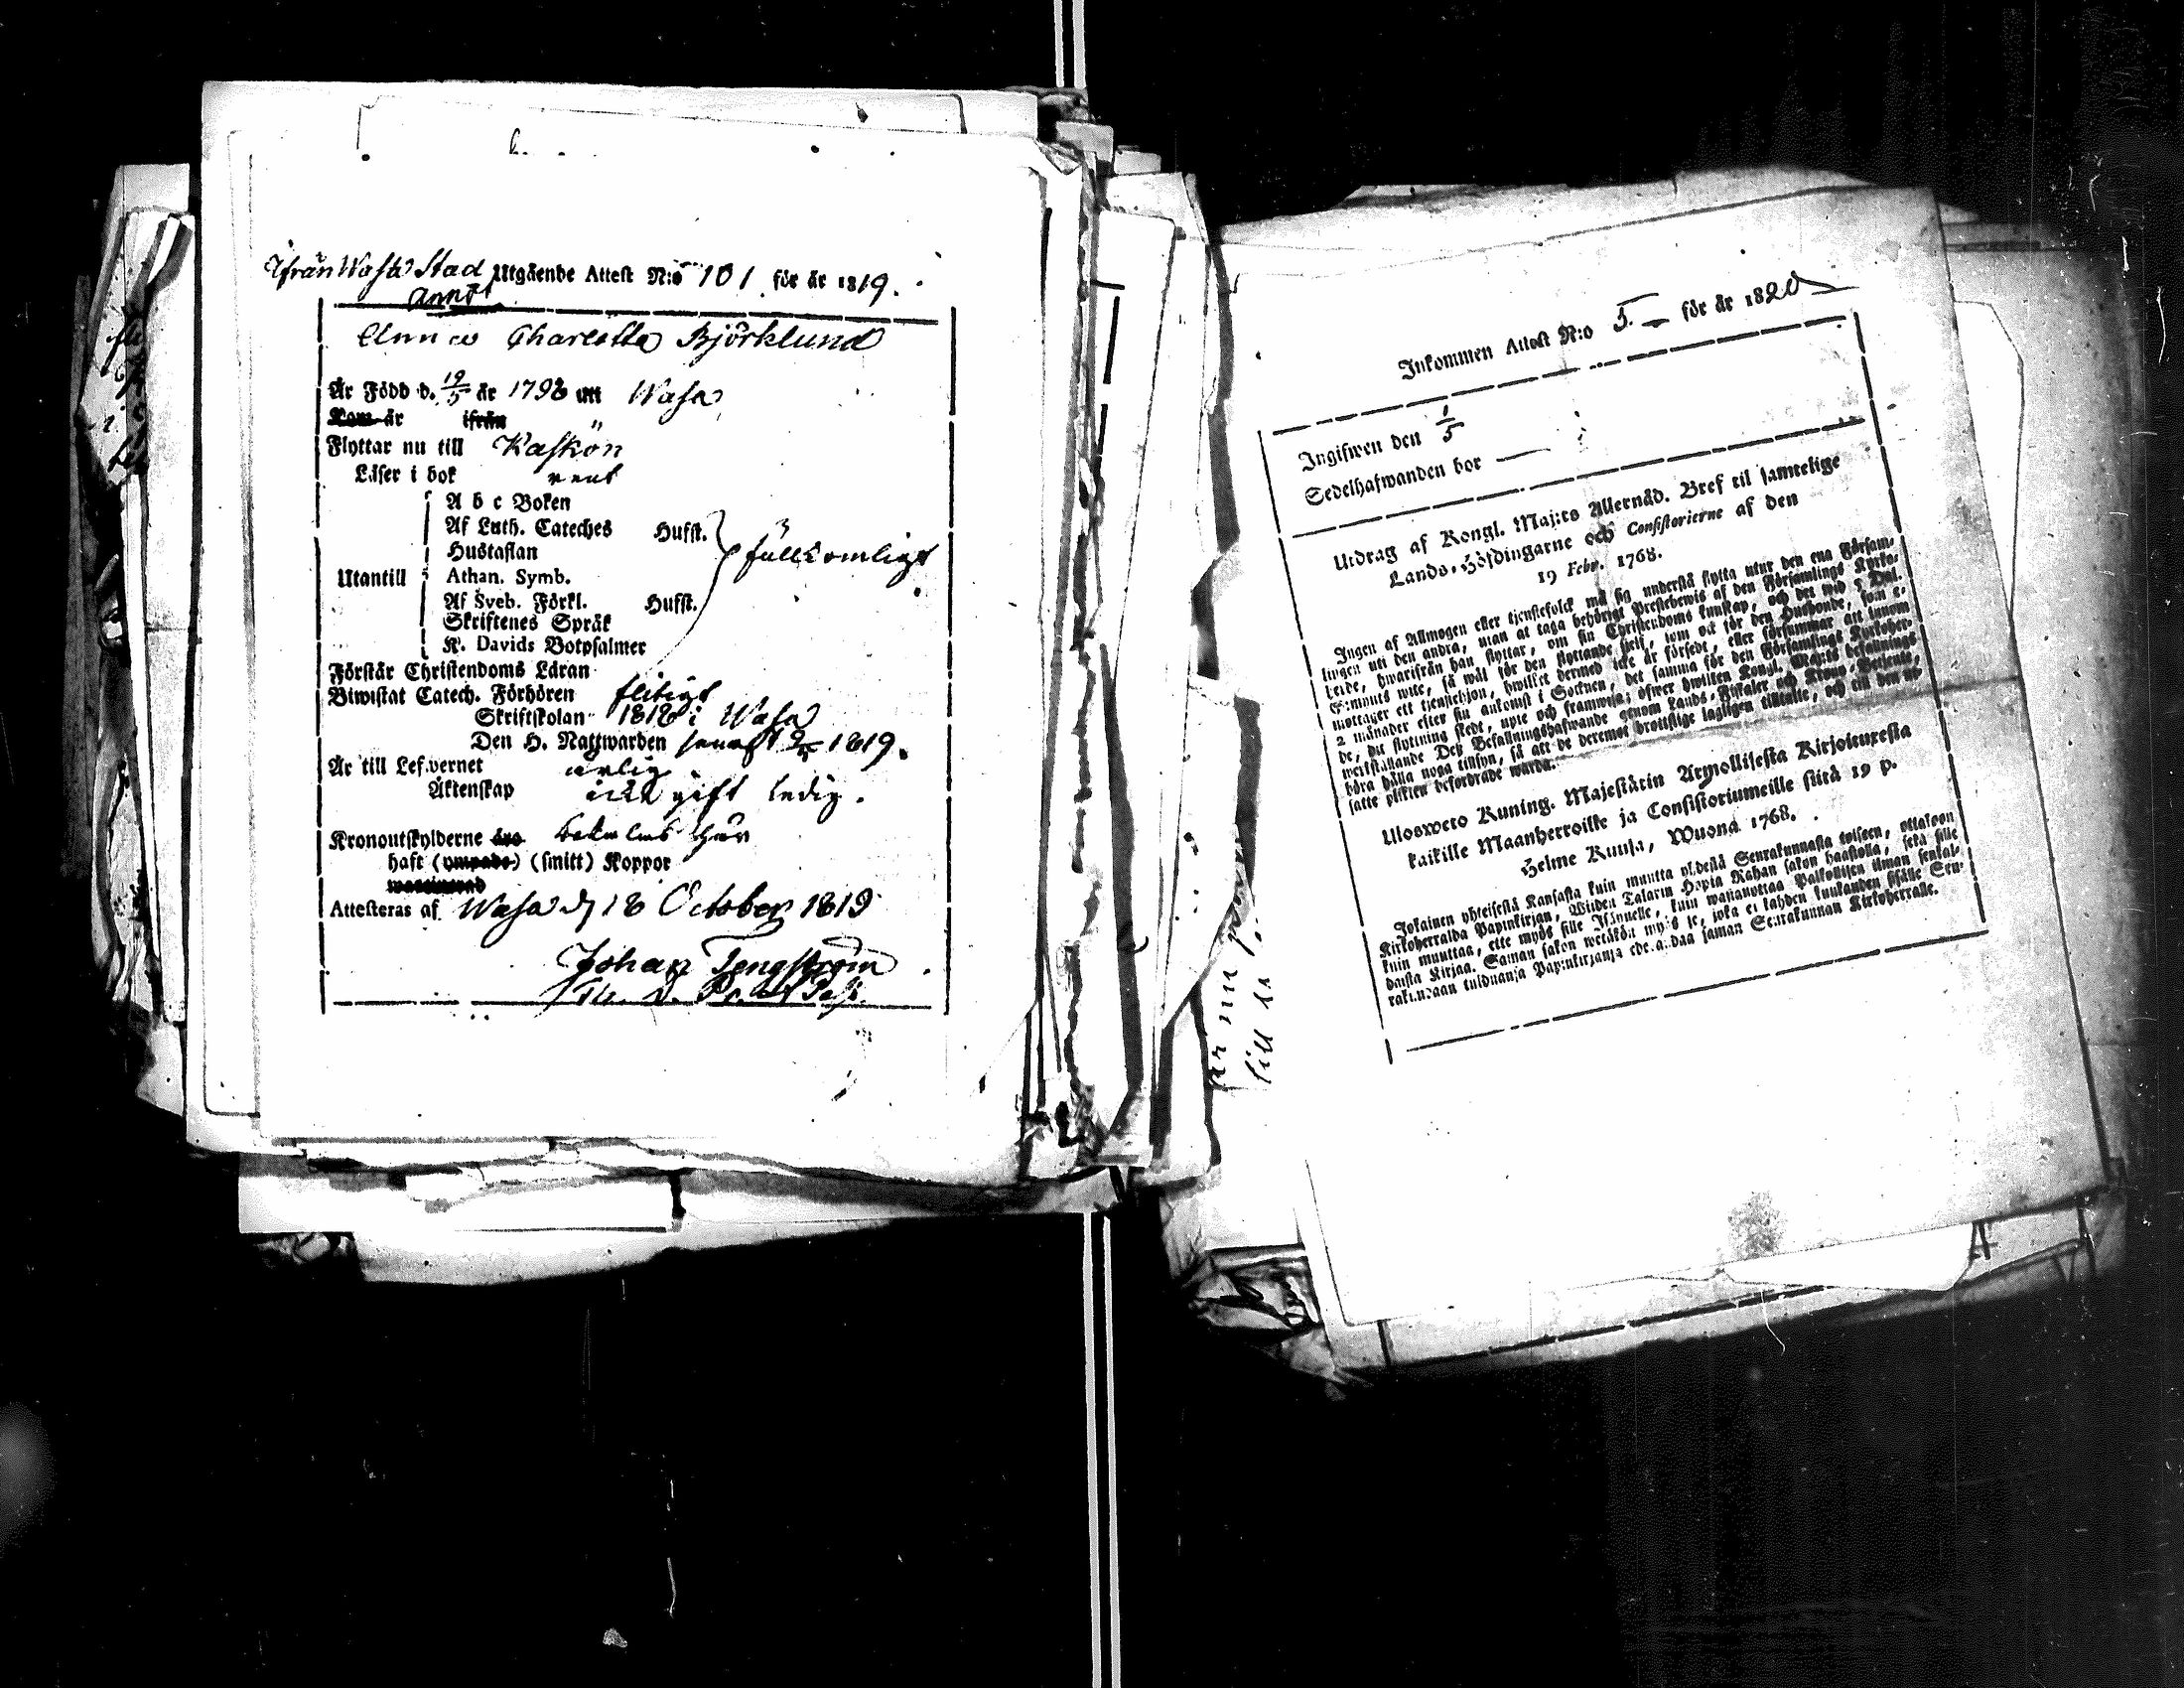 Ifrån Wasa Stad Utgående Attest N:o 101 för år 1819.
annot
Anna Charlotta Björklund
Är Född d. 19/5 år 1798 uti Wasa
Kom år ifrån
Flyttar nu till Kaskön
Läser i bok rent
A b c Boken
Af Luth. Cateches Hufst.
Hustaflan fullkomligt
Utantill Athan. Symb.
Af Sveb. Förkl. Hufst.
Skriftenes Språk
K. Davids Botpsalmer
Förstår Christendoms Läran
Biwistat Catech. Förhören flitigt
Skriftskolan 1818 i Wasa
Den H. Nattwarden senast 1819.
Är till Lefvernet ärlig
Äktenskap gift ledig.
Kronoutskylderne äro
haft (ympade) (smitt) Koppor
Attesteras af Wasa d 18 October 1819
Johan Tengström
Inkommen Attest N:o 5. för år 1820
Ingifwen den 1/5
Sedelhafwanden bor
Utdrag af Kongl. Maj:ts Allernåd. Bref til samtelige
Lands-Höfdingarne och Consistorierne af den
19 Febr. 1768.
Ingen af Allmogen eller tjenstefolck må sig understå flytta utur den ena Försam-
lingen uti den andra, utan at taga behörigt Prestebewis af den Församlings Kyrko-
herde, hwarifrån han flyttar, om sin Christendoms kunskap, och det wid 5 Dal.
S:mynts wite, så wäl för den flyttande sjelf, som ock för den Husbonde, som e-
mottager ett tjenstehjon, hwilket dermed icke är försedt, eller försummar att innom
2 månader efter sin ankomst i Socknen, det samma för den Församlings Kyrkoher-
de, dit flyttning skedt, upte och framwisa; öfwer hwilken Kongl. Maj:ts befallnings
werkställande Dess Befallningshafwande genom Lands-Fiskaler och Krono-Betjente,
böra hålla noga tilsyn, så att de deremot brottslige lagligen tilltalte, och till den ut-
satte plikten befordrade warda.
Ulosweto Kuning. Majestätin Armollisesta Kirjoituxesta
kaikille Maanherroille ja Consistoriumeille siitä 19 p.
Helme Kuusa, Wuona 1768.
Jokainen yhteisestä Kansasta kuin muutta yhdestä Seurakunnasta toiseen, ottakoon
Kirkoherralda Papinkirjan, Wiiden Talarin Hopia Rahan sakon haastolla, sekä sille
kuin muuttaa, ette myös sille Isännelle, kuin wastanottaa Palkollisen ilman senkal-
daista Kirjaa. Saman sakon wetäköön myös se, joka ei kahden kuukauden sisälle Seu-
rakundaan tulduansa Papinkirjansa edesandaa saman Seurakunnan Kirkoherralle.